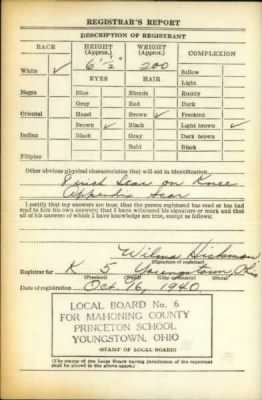 REGISTRAR'S REPORT
DESCRIPTION OF REGISTRANT
RACE HEIGHT (Approx.) WEIGHT (Approx.) COMPLEXION
White ✓ 6' ½" 200 Sallow
EYES HAIR Light
Negro Blue Blonde Ruddy
Gray Red Dark
Oriental Hazel Brown ✓ Freckled
Brown ✓ Black Light brown ✓
Indian Black Gray Dark brown
Bald Black
Filipino
Other obvious physical characteristics that will aid in identification
Scar on Knee
Appendix Scar
I certify that my answers are true; that the person registered has read or has had
read to him his own answers; that I have witnessed his signature or mark and that
all of his answers of which I have knowledge are true, except as follows:
Wilma Hickman
(Signature of registrar)
Registrar for K 5 Youngstown, Ohio
(Precinct) (Ward) (City or county) (State)
Date of registration Oct 16, 1940
LOCAL BOARD No. 6
FOR MAHONING COUNTY
PRINCETON SCHOOL
YOUNGSTOWN, OHIO
(STAMP OF LOCAL BOARD)
(The stamp of the Local Board having jurisdiction of the registrant
shall be placed in the above space.)